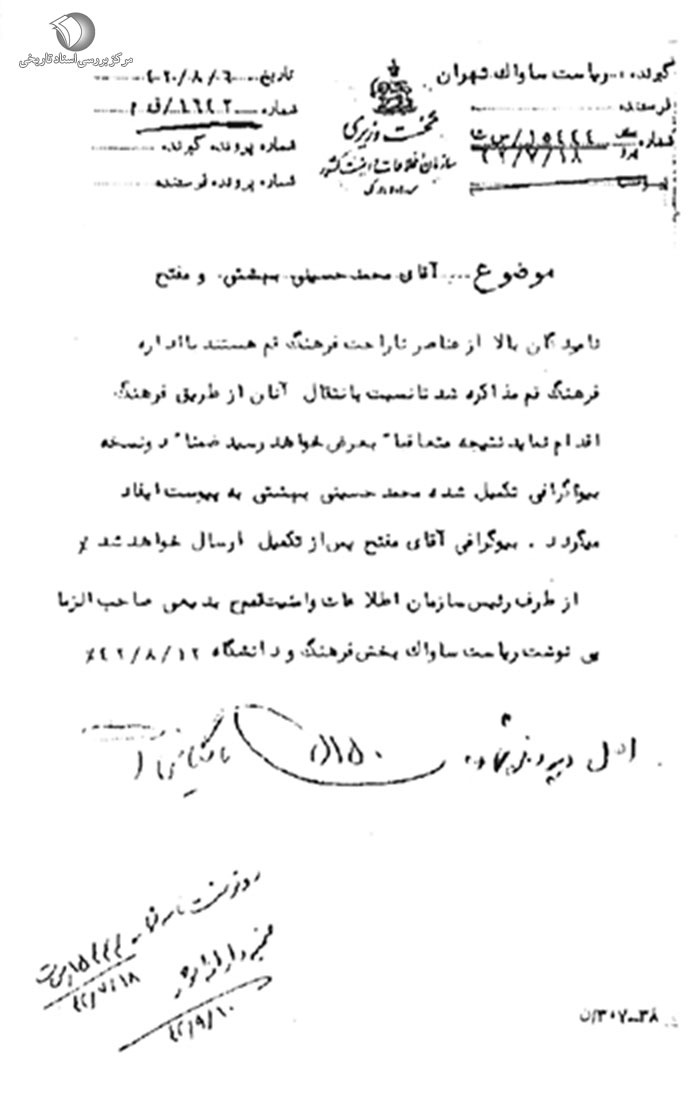 مرکز بررسی اسناد تاریخی
گیرنده ریاست ساواک تهران
فرستنده
شماره ۱۵۴۴۴/س ت
۴۲/۷/۱۸
نخست وزیری
سازمان اطلاعات و امنیت کشور
تاریخ
شماره ۱۶۴۲/ق م
شماره پرونده گیرنده
شماره پرونده فرستنده
موضوع ... آقای محمد حسینی بهشتی و مفتح
نامبردگان بالا از عناصر ناراحت فرهنگ قم هستند با اداره
فرهنگ قم مذاکره شد تا نسبت بانتقال آنان از طریق فرهنگ
اقدام نماید نتیجه متعاقبا" بعرض خواهد رسید ضمنا" دونسخه
بیوگرافی تکمیل شده محمد حسینی بهشتی به پیوست ایفاد
میگردد . بیوگرافی آقای مفتح پس از تکمیل ارسال خواهد شد ٪
از طرف رئیس سازمان اطلاعات و امنیت قم بدیعی صاحب الزما
پی نوشت ریاست ساواک بخش فرهنگ و دانشگاه ۴۲/۸/۱۲٪
۱۵۴۴۴/س ت
۴۲/۷/۱۸
۴۲/۹/۱۰
۳۰۷-۳۸/ن